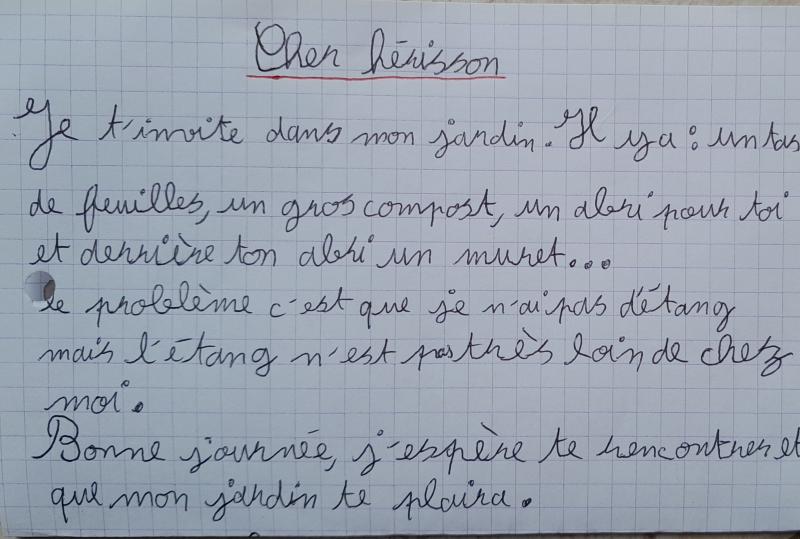 Cher hérisson
Je t'invite dans mon jardin. Il y a : un tas
de feuilles, un gros compost, un abri pour toi
et derrière ton abri un muret...
le problème c'est que je n'ai pas d'étang
mais l'étang n'est pas très loin de chez
moi.
Bonne journée, j'espère te rencontrer et
que mon jardin te plaira.